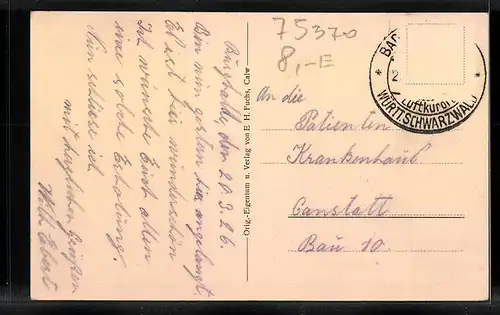 Burghalde, den 20.3.26.
Bin nun gestern hier angelangt.
Es ist hier wunderschön
Ich wünsche Euch allen
eine solche Erholung.
Nun schliese ich
mit herzlichen Grüßen
Wilh.
Orig.-Eigentum u. Verlag von E. H. Fuchs, Calw
75370
8,-E
An die
Patienten
Krankenhaus
Canstatt
Bau 10.
BAD
Luftkurort
WÜRTT. SCHWARZWALD